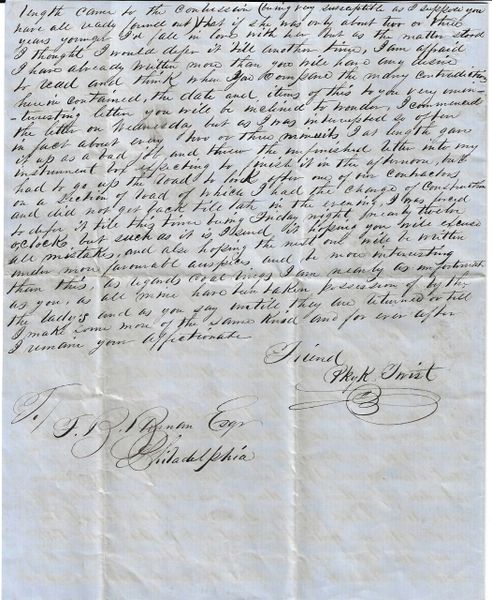 length came to the Conclusion (being very susceptible as I suppose you
have all ready found out that if she was only about two or three
years younger I'd fall in love with her but as the matter stood
I thought I would defer it till another time, I am afraid
I have already written more than you will have any desire
to read and think when you Compare the many contradictions
herein contained, the date and items of this to you very unin-
teresting letter you will be inclined to wonder, I commenced
the letter on Wednesday but as I was interrupted so often
in fact about every two or three moments I at length gave
it up as a bad job and threw the unfinished letter into my
instrument box expecting to finish it in the afternoon, but
had to go up the road to look after one of our contractors
on a section of road of which I had the charge of Construction
and did not get back till late in the evening, I was forced
to defer it till this time being Friday night, nearly twelve
oclock, but such as it is I send it hoping you will excuse
all mistakes, and also hoping the next one will be written
under more favourable auspices and be more interesting
than this, as regards I am nearly as unfortunate
as you, as all mine have been taken possession of by the
the lady's and as you say untill they are returned or till
I make some more of the same kind and for ever after
I remain your affectionate
Friend
Twist
To/
F. B. Esqr
Philadelphia